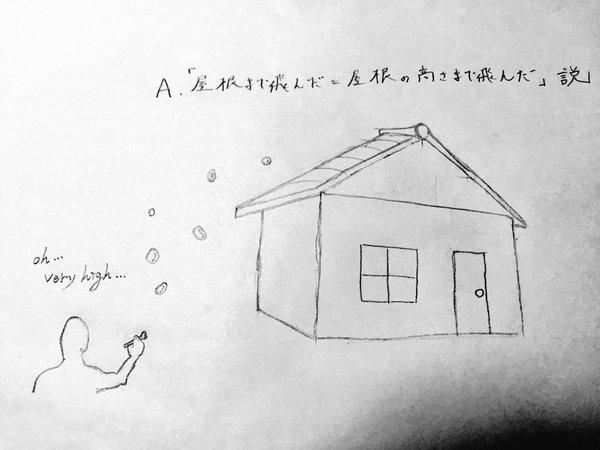 A.「屋根まで飛んだ=屋根の高さまで飛んだ」説」
oh...
very high...